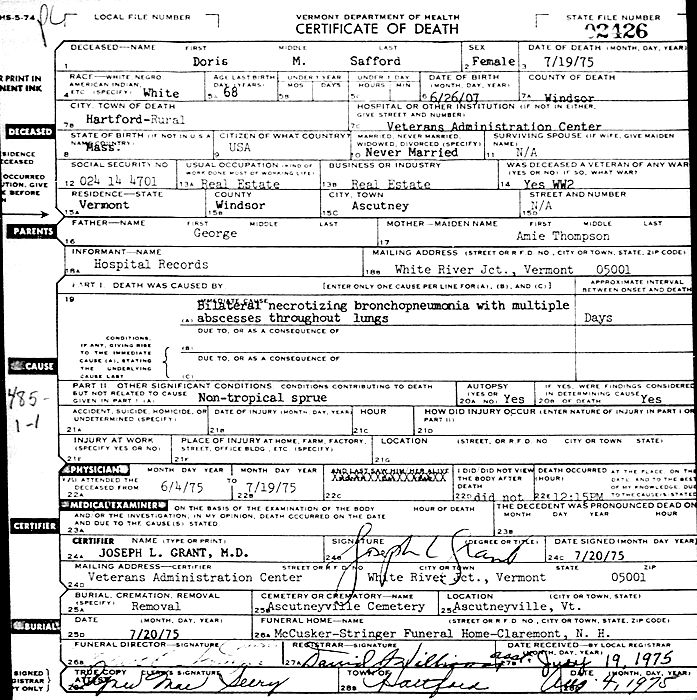 HS-5-74
LOCAL FILE NUMBER VERMONT DEPARTMENT OF HEALTH STATE FILE NUMBER
CERTIFICATE OF DEATH 02426
DECEASED—NAME FIRST MIDDLE LAST SEX DATE OF DEATH (MONTH, DAY, YEAR)
1 Doris M. Safford 2 Female 3 7/19/75
R PRINT IN
NENT INK
RACE—WHITE NEGRO AMERICAN INDIAN, ETC (SPECIFY) AGE LAST BIRTHDAY (YEARS) UNDER 1 YEAR MOS DAYS UNDER 1 DAY HOURS MIN DATE OF BIRTH (MONTH, DAY, YEAR) COUNTY OF DEATH
4 White 5A 68 5B 5C 6 6/26/07 7A Windsor
CITY, TOWN OF DEATH HOSPITAL OR OTHER INSTITUTION (IF NOT IN EITHER, GIVE STREET AND NUMBER)
7B Hartford-Rural 7C Veterans Administration Center
DECEASED
STATE OF BIRTH (IF NOT IN U S A NAME COUNTRY) CITIZEN OF WHAT COUNTRY MARRIED, NEVER MARRIED, WIDOWED, DIVORCED (SPECIFY) SURVIVING SPOUSE (IF WIFE, GIVE MAIDEN NAME)
8 Mass. 9 USA 10 Never Married 11 N/A
SIDENCE
ECEASED
OCCURRED
UTION, GIVE
E BEFORE
N
SOCIAL SECURITY NO USUAL OCCUPATION (KIND OF WORK DONE MOST OF WORKING LIFE) BUSINESS OR INDUSTRY WAS DECEASED A VETERAN OF ANY WAR (YES OR NO) IF SO, WHAT WAR?
12 024 14 4701 13A Real Estate 13B Real Estate 14 Yes WW2
RESIDENCE—STATE COUNTY CITY, TOWN STREET AND NUMBER
15A Vermont 15B Windsor 15C Ascutney 15D N/A
PARENTS
FATHER—NAME FIRST MIDDLE LAST MOTHER—MAIDEN NAME FIRST MIDDLE LAST
16 George 17 Amie Thompson
INFORMANT—NAME MAILING ADDRESS (STREET OR R F D NO, CITY OR TOWN, STATE, ZIP CODE)
18A Hospital Records 18B White River Jct., Vermont 05001
PART I. DEATH WAS CAUSED BY [ENTER ONLY ONE CAUSE PER LINE FOR (A), (B), AND (C)] APPROXIMATE INTERVAL BETWEEN ONSET AND DEATH
19 IMMEDIATE CAUSE
Bilateral necrotizing bronchopneumonia with multiple
(A) abscesses throughout lungs Days
DUE TO, OR AS A CONSEQUENCE OF
CONDITIONS, IF ANY, GIVING RISE TO THE IMMEDIATE CAUSE (A), STATING THE UNDERLYING CAUSE LAST
(B)
DUE TO, OR AS A CONSEQUENCE OF
(C)
CAUSE
485-
1-1
PART II OTHER SIGNIFICANT CONDITIONS CONDITIONS CONTRIBUTING TO DEATH BUT NOT RELATED TO CAUSE GIVEN IN PART I (A) AUTOPSY (YES OR NO) IF YES, WERE FINDINGS CONSIDERED IN DETERMINING CAUSE OF DEATH
Non-tropical sprue 20A Yes 20B Yes
ACCIDENT, SUICIDE, HOMICIDE, OR UNDETERMINED (SPECIFY) DATE OF INJURY (MONTH, DAY, YEAR) HOUR HOW DID INJURY OCCUR (ENTER NATURE OF INJURY IN PART I OR PART II)
21A 21B 21C 21D
INJURY AT WORK (SPECIFY YES OR NO) PLACE OF INJURY AT HOME, FARM, FACTORY, STREET, OFFICE BLDG, ETC (SPECIFY) LOCATION (STREET, OR R F D NO CITY OR TOWN STATE)
21E 21F 21G
PHYSICIAN MONTH DAY YEAR TO MONTH DAY YEAR AND LAST SAW HIM HER ALIVE I DID DID NOT VIEW THE BODY AFTER DEATH DEATH OCCURRED (HOUR) AT THE PLACE ON THE DATE, AND TO THE BEST OF MY KNOWLEDGE DUE TO THE CAUSE(S) STATED
YOU ATTENDED THE DECEASED FROM
22A 6/4/75 22B 7/19/75 22C 22D did not 22E 12:15PM
MEDICAL EXAMINER ON THE BASIS OF THE EXAMINATION OF THE BODY AND/OR THE INVESTIGATION, IN MY OPINION, DEATH OCCURRED ON THE DATE AND DUE TO THE CAUSE(S) STATED. HOUR OF DEATH THE DECEDENT WAS PRONOUNCED DEAD ON MONTH DAY YEAR HOUR
23A 23B
CERTIFIER
CERTIFIER NAME (TYPE OR PRINT) SIGNATURE (DEGREE OR TITLE) DATE SIGNED (MONTH, DAY, YEAR)
24A JOSEPH L. GRANT, M.D. 24B Joseph L Grant 24C 7/20/75
MAILING ADDRESS—CERTIFIER STREET OR R F D NO CITY OR TOWN STATE ZIP
24D Veterans Administration Center White River Jct., Vermont 05001
BURIAL, CREMATION, REMOVAL (SPECIFY) CEMETERY OR CREMATORY—NAME LOCATION (CITY OR TOWN, STATE)
25A Removal 25B Ascutneyville Cemetery 25C Ascutneyville, Vt.
BURIAL
DATE (MONTH, DAY, YEAR) FUNERAL HOME—NAME (STREET OR R F D NO, CITY OR TOWN, STATE, ZIP CODE)
25D 7/20/75 26A McCusker-Stringer Funeral Home-Claremont, N. H.
FUNERAL DIRECTOR—SIGNATURE REGISTRAR—SIGNATURE DATE RECEIVED BY LOCAL REGISTRAR
26B 27A asst. 27B July 19, 1975
SIGNED
GISTRAR
Y ONLY)
TRUE COPY CLERK'S SIGNATURE TOWN OF DATE (MONTH, DAY, YEAR)
28A 28B Hartford Aug 4, 1975